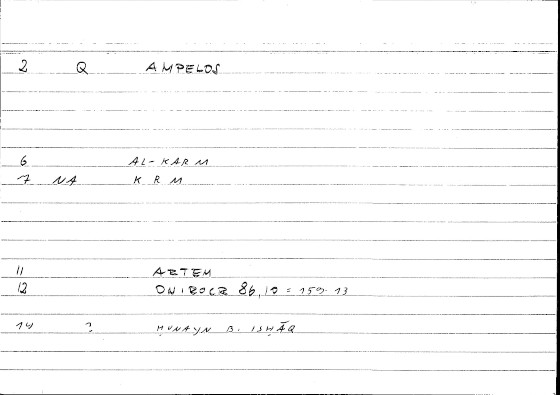 2 Q AMPELOS
6 AL-KARM
7 NA KRM
11 ARTEM
12 ONIROCR 86,10 = 159.13
14 ? ḤUNAYN B. ISḤĀQ